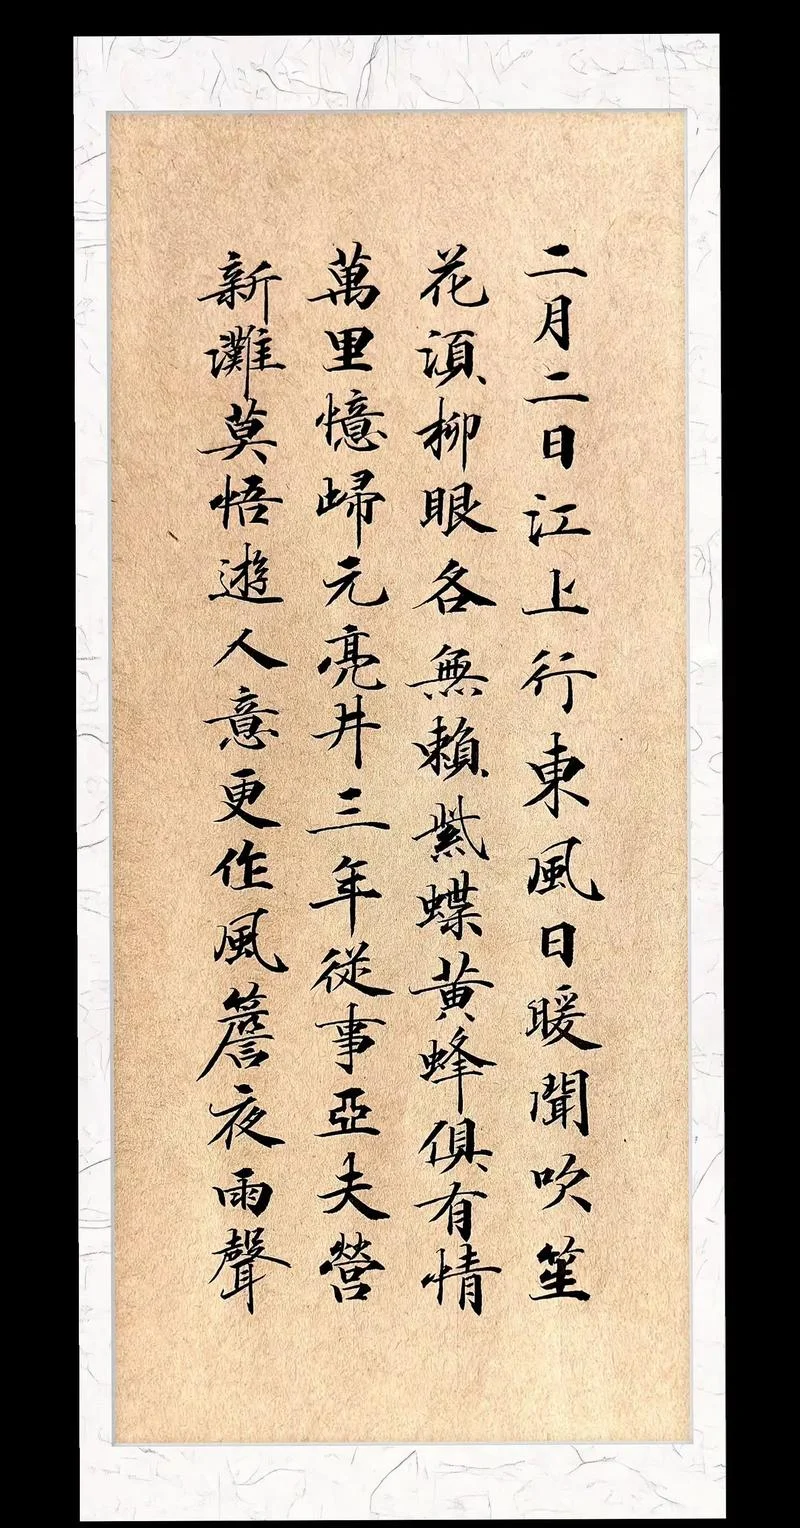 二月二日江上行東風日暖聞吹笙
花湏柳眼各無賴紫蝶黃蜂俱有情
萬里憶歸元亮井三年從事亞夫營
新灘莫悟遊人意更作風簷夜雨聲